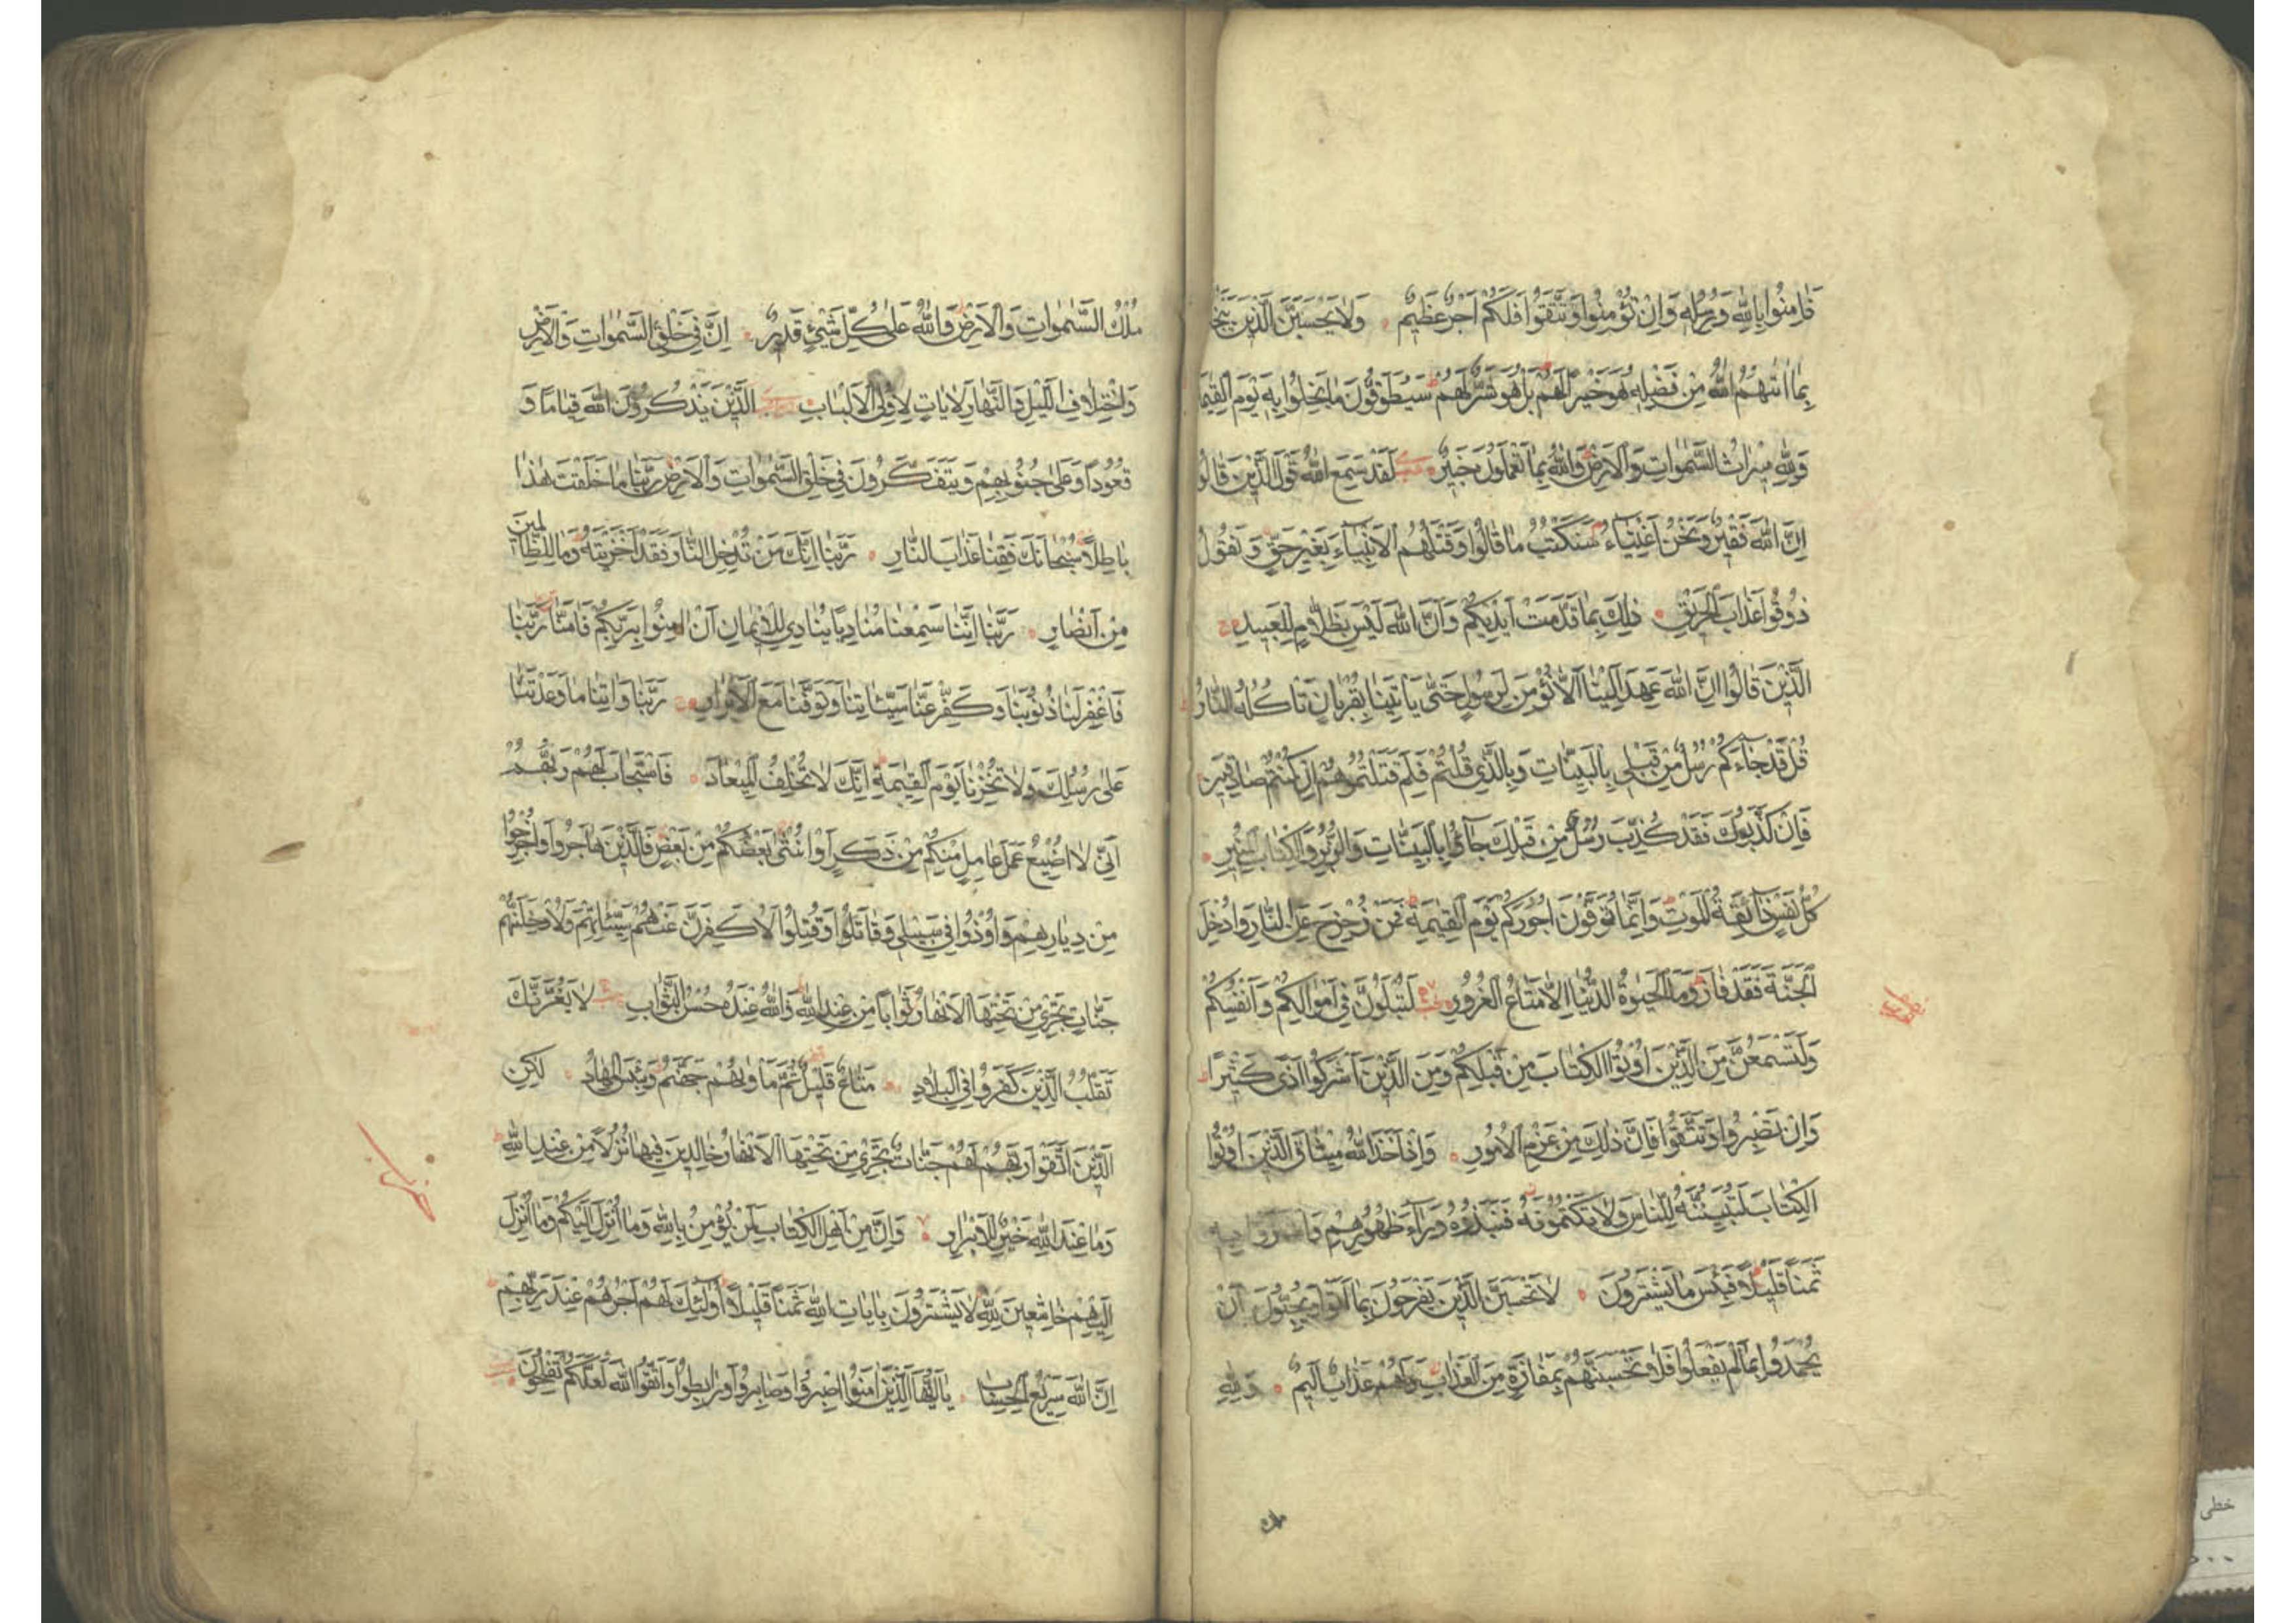 فَاٰمِنُوا بِاللّٰهِ وَرُسُلِهِ وَاِنْ تُؤْمِنُوا وَتَتَّقُوا فَلَكُمْ اَجْرٌ عَظِيمٌ وَلَا يَحْسَبَنَّ الَّذِينَ يَبْخَلُونَ
بِمَا اٰتٰىهُمُ اللّٰهُ مِنْ فَضْلِهِ هُوَ خَيْرًا لَهُمْ بَلْ هُوَ شَرٌّ لَهُمْ سَيُطَوَّقُونَ مَا بَخِلُوا بِهِ يَوْمَ الْقِيٰمَةِ
وَلِلّٰهِ مِيرَاثُ السَّمٰوَاتِ وَالْاَرْضِ وَاللّٰهُ بِمَا تَعْمَلُونَ خَبِيرٌ لَقَدْ سَمِعَ اللّٰهُ قَوْلَ الَّذِينَ قَالُوا
اِنَّ اللّٰهَ فَقِيرٌ وَنَحْنُ اَغْنِيَاءُ سَنَكْتُبُ مَا قَالُوا وَقَتْلَهُمُ الْاَنْبِيَاءَ بِغَيْرِ حَقٍّ وَنَقُولُ
ذُوقُوا عَذَابَ الْحَرِيقِ ذٰلِكَ بِمَا قَدَّمَتْ اَيْدِيكُمْ وَاَنَّ اللّٰهَ لَيْسَ بِظَلَّامٍ لِلْعَبِيدِ
الَّذِينَ قَالُوا اِنَّ اللّٰهَ عَهِدَ اِلَيْنَا اَلَّا نُؤْمِنَ لِرَسُولٍ حَتّٰى يَاْتِيَنَا بِقُرْبَانٍ تَاْكُلُهُ النَّارُ
قُلْ قَدْ جَاءَكُمْ رُسُلٌ مِنْ قَبْلِي بِالْبَيِّنَاتِ وَبِالَّذِي قُلْتُمْ فَلِمَ قَتَلْتُمُوهُمْ اِنْ كُنْتُمْ صَادِقِينَ
فَاِنْ كَذَّبُوكَ فَقَدْ كُذِّبَ رُسُلٌ مِنْ قَبْلِكَ جَاؤُا بِالْبَيِّنَاتِ وَالزُّبُرِ وَالْكِتَابِ الْمُنِيرِ
كُلُّ نَفْسٍ ذَائِقَةُ الْمَوْتِ وَاِنَّمَا تُوَفَّوْنَ اُجُورَكُمْ يَوْمَ الْقِيٰمَةِ فَمَنْ زُحْزِحَ عَنِ النَّارِ وَاُدْخِلَ
الْجَنَّةَ فَقَدْ فَازَ وَمَا الْحَيٰوةُ الدُّنْيَا اِلَّا مَتَاعُ الْغُرُورِ لَتُبْلَوُنَّ فِي اَمْوَالِكُمْ وَاَنْفُسِكُمْ
وَلَتَسْمَعُنَّ مِنَ الَّذِينَ اُوتُوا الْكِتَابَ مِنْ قَبْلِكُمْ وَمِنَ الَّذِينَ اَشْرَكُوا اَذًى كَثِيرًا
وَاِنْ تَصْبِرُوا وَتَتَّقُوا فَاِنَّ ذٰلِكَ مِنْ عَزْمِ الْاُمُورِ وَاِذْ اَخَذَ اللّٰهُ مِيثَاقَ الَّذِينَ اُوتُوا
الْكِتَابَ لَتُبَيِّنُنَّهُ لِلنَّاسِ وَلَا تَكْتُمُونَهُ فَنَبَذُوهُ وَرَاءَ ظُهُورِهِمْ وَاشْتَرَوْا بِهِ
ثَمَنًا قَلِيلًا فَبِئْسَ مَا يَشْتَرُونَ لَا تَحْسَبَنَّ الَّذِينَ يَفْرَحُونَ بِمَا اَتَوْا وَيُحِبُّونَ اَنْ
يُحْمَدُوا بِمَا لَمْ يَفْعَلُوا فَلَا تَحْسَبَنَّهُمْ بِمَفَازَةٍ مِنَ الْعَذَابِ وَلَهُمْ عَذَابٌ اَلِيمٌ وَلِلّٰهِ
ملك
مُلْكُ السَّمٰوَاتِ وَالْاَرْضِ وَاللّٰهُ عَلٰى كُلِّ شَيْءٍ قَدِيرٌ اِنَّ فِي خَلْقِ السَّمٰوَاتِ وَالْاَرْضِ
وَاخْتِلَافِ اللَّيْلِ وَالنَّهَارِ لَاٰيَاتٍ لِاُولِي الْاَلْبَابِ الَّذِينَ يَذْكُرُونَ اللّٰهَ قِيَامًا وَ
قُعُودًا وَعَلٰى جُنُوبِهِمْ وَيَتَفَكَّرُونَ فِي خَلْقِ السَّمٰوَاتِ وَالْاَرْضِ رَبَّنَا مَا خَلَقْتَ هٰذَا
بَاطِلًا سُبْحَانَكَ فَقِنَا عَذَابَ النَّارِ رَبَّنَا اِنَّكَ مَنْ تُدْخِلِ النَّارَ فَقَدْ اَخْزَيْتَهُ وَمَا لِلظَّالِمِينَ
مِنْ اَنْصَارٍ رَبَّنَا اِنَّنَا سَمِعْنَا مُنَادِيًا يُنَادِي لِلْاِيمَانِ اَنْ اٰمِنُوا بِرَبِّكُمْ فَاٰمَنَّا رَبَّنَا
فَاغْفِرْ لَنَا ذُنُوبَنَا وَكَفِّرْ عَنَّا سَيِّئَاتِنَا وَتَوَفَّنَا مَعَ الْاَبْرَارِ رَبَّنَا وَاٰتِنَا مَا وَعَدْتَنَا
عَلٰى رُسُلِكَ وَلَا تُخْزِنَا يَوْمَ الْقِيٰمَةِ اِنَّكَ لَا تُخْلِفُ الْمِيعَادَ فَاسْتَجَابَ لَهُمْ رَبُّهُمْ
اَنِّي لَا اُضِيعُ عَمَلَ عَامِلٍ مِنْكُمْ مِنْ ذَكَرٍ اَوْ اُنْثٰى بَعْضُكُمْ مِنْ بَعْضٍ فَالَّذِينَ هَاجَرُوا وَاُخْرِجُوا
مِنْ دِيَارِهِمْ وَاُوذُوا فِي سَبِيلِي وَقَاتَلُوا وَقُتِلُوا لَاُكَفِّرَنَّ عَنْهُمْ سَيِّئَاتِهِمْ وَلَاُدْخِلَنَّهُمْ
جَنَّاتٍ تَجْرِي مِنْ تَحْتِهَا الْاَنْهَارُ ثَوَابًا مِنْ عِنْدِ اللّٰهِ وَاللّٰهُ عِنْدَهُ حُسْنُ الثَّوَابِ لَا يَغُرَّنَّكَ
تَقَلُّبُ الَّذِينَ كَفَرُوا فِي الْبِلَادِ مَتَاعٌ قَلِيلٌ ثُمَّ مَاْوٰيهُمْ جَهَنَّمُ وَبِئْسَ الْمِهَادُ لٰكِنِ
الَّذِينَ اتَّقَوْا رَبَّهُمْ لَهُمْ جَنَّاتٌ تَجْرِي مِنْ تَحْتِهَا الْاَنْهَارُ خَالِدِينَ فِيهَا نُزُلًا مِنْ عِنْدِ اللّٰهِ
وَمَا عِنْدَ اللّٰهِ خَيْرٌ لِلْاَبْرَارِ وَاِنَّ مِنْ اَهْلِ الْكِتَابِ لَمَنْ يُؤْمِنُ بِاللّٰهِ وَمَا اُنْزِلَ اِلَيْكُمْ وَمَا اُنْزِلَ
اِلَيْهِمْ خَاشِعِينَ لِلّٰهِ لَا يَشْتَرُونَ بِاٰيَاتِ اللّٰهِ ثَمَنًا قَلِيلًا اُولٰئِكَ لَهُمْ اَجْرُهُمْ عِنْدَ رَبِّهِمْ
اِنَّ اللّٰهَ سَرِيعُ الْحِسَابِ يَا اَيُّهَا الَّذِينَ اٰمَنُوا اصْبِرُوا وَصَابِرُوا وَرَابِطُوا وَاتَّقُوا اللّٰهَ لَعَلَّكُمْ تُفْلِحُونَ
خطی